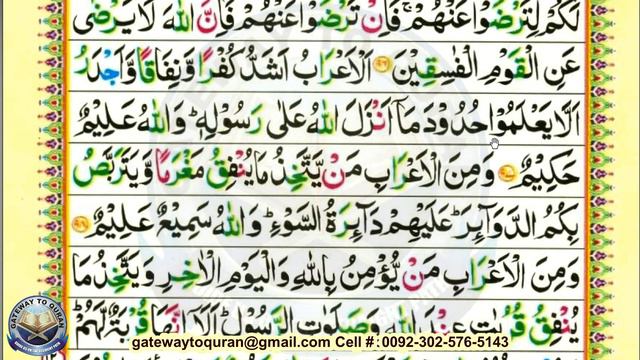 لَكُمْ لِتَرْضَوْا عَنْهُمْ ۚ فَاِنْ تَرْضَوْا عَنْهُمْ فَاِنَّ اللّٰهَ لَا يَرْضٰى
عَنِ الْقَوْمِ الْفٰسِقِيْنَ ﴿۹۶﴾ اَلْاَعْرَابُ اَشَدُّ كُفْرًا وَّنِفَاقًا وَّاَجْدَرُ
اَلَّا يَعْلَمُوْا حُدُوْدَ مَاۤ اَنْزَلَ اللّٰهُ عَلٰى رَسُوْلِهٖ ؕ وَاللّٰهُ عَلِيْمٌ
حَكِيْمٌ ﴿۹۷﴾ وَمِنَ الْاَعْرَابِ مَنْ يَّتَّخِذُ مَا يُنْفِقُ مَغْرَمًا وَّيَتَرَبَّصُ
بِكُمُ الدَّوَآئِرَ ؕ عَلَيْهِمْ دَآئِرَةُ السَّوْءِ ؕ وَاللّٰهُ سَمِيْعٌ عَلِيْمٌ ﴿۹۸﴾
وَمِنَ الْاَعْرَابِ مَنْ يُّؤْمِنُ بِاللّٰهِ وَالْيَوْمِ الْاٰخِرِ وَيَتَّخِذُ مَا
يُنْفِقُ قُرُبٰتٍ عِنْدَ اللّٰهِ وَصَلَوٰتِ الرَّسُوْلِ ؕ اَلَاۤ اِنَّهَا قُرْبَةٌ لَّهُمْ ؕ
GATEWAY TO QURAN
gatewaytoquran@gmail.com Cell #: 0092-302-576-5143